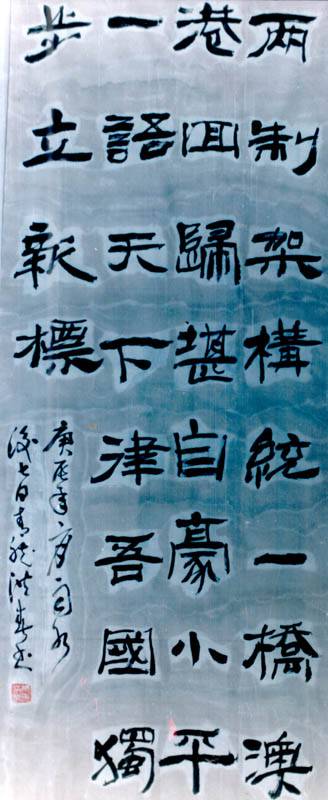 兩制架構統一橋澳
港回歸堪自豪小平
一語天下律吾國獨
步立新標
庚辰年
後七日